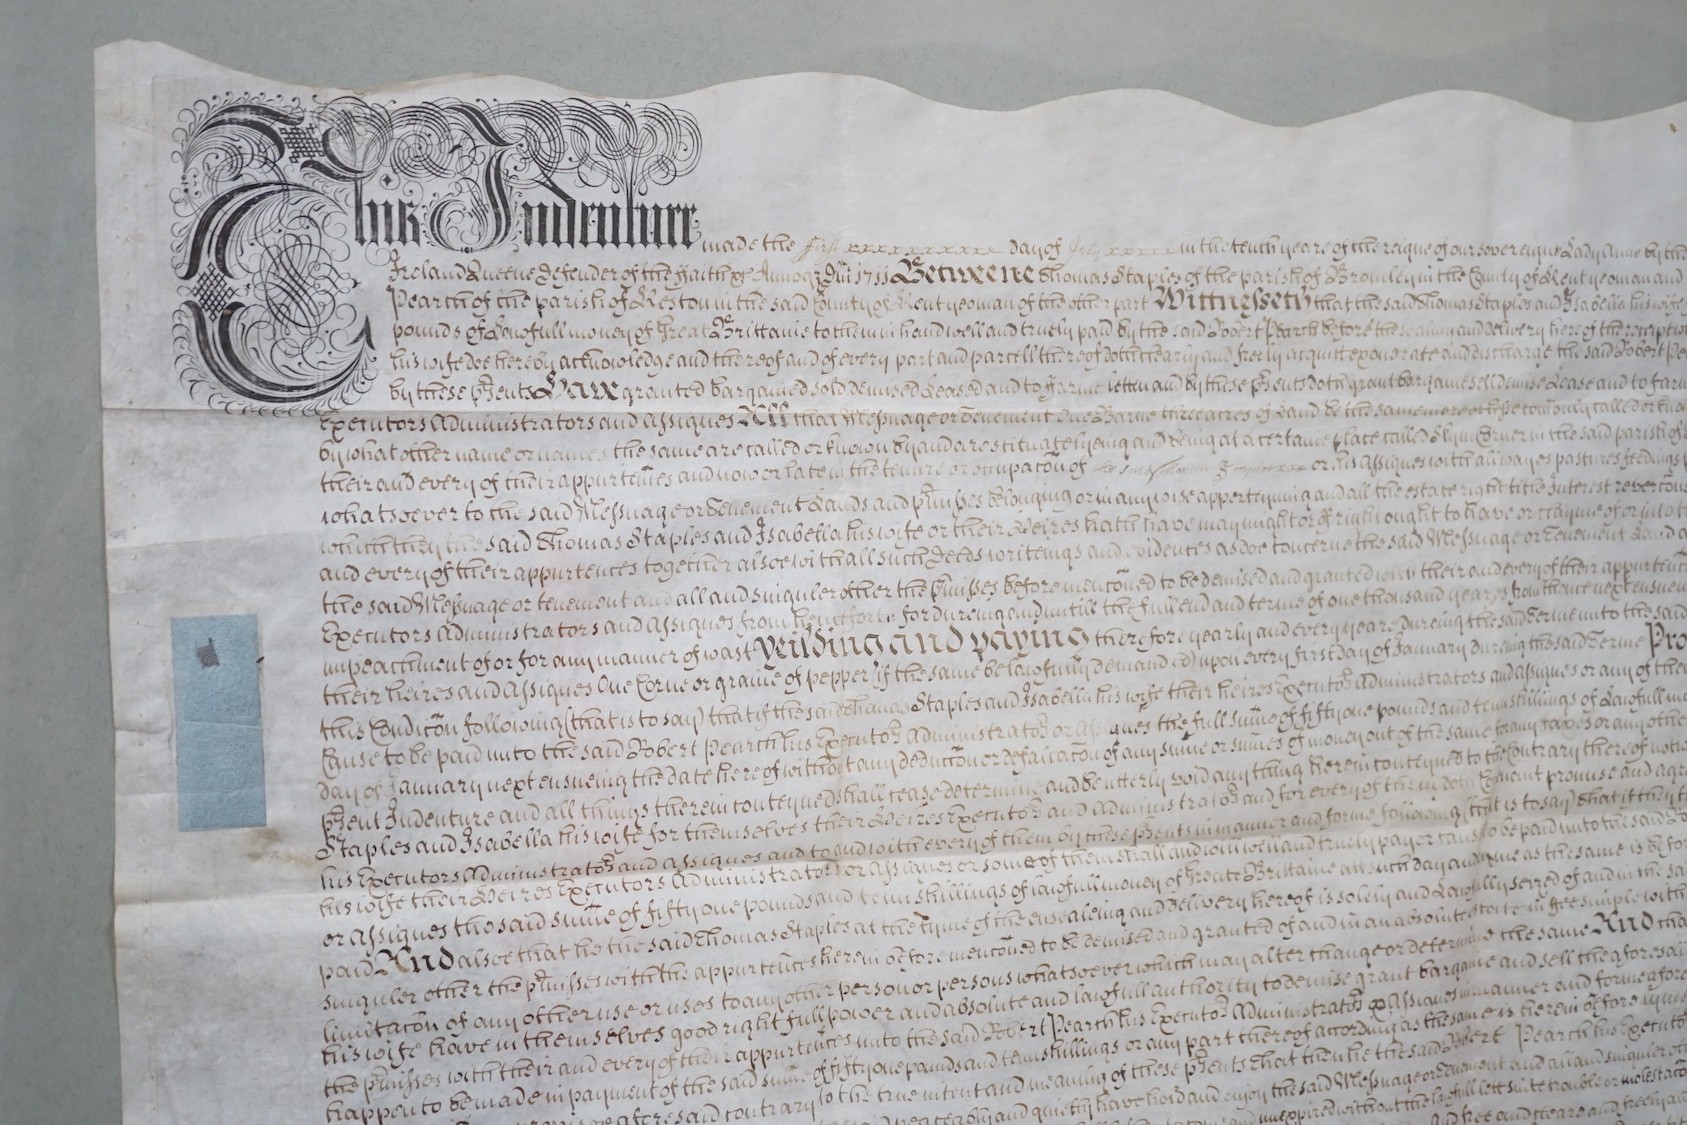 This Indenture made the first day of July in the tenth yeare of the reigne of our sovereigne Lady Anne by the
Ireland Queene Defender of the Faith &c Annoq Dni 1711 Betweene Thomas Staples of the parish of Bromley in the County of Kent yeoman and
Pearch of the parish of Keston in the said County of Kent yeoman of the other part Wittnesseth that the said Thomas Staples and Isabella his wife
pounds of Lawfull money of Great Brittaine to them in hand well and truely paid by the said Robert Pearch before the sealing and delivery hereof the receipt
his wife doe hereby acknowledge and thereof and of every part and parcell thereof doth clearly and freely acquitt exonerate and discharge the said Robert
by these Psents Have granted bargained sold demised Leased and to Farme letten and by these psents doth grant bargaine sell demise Lease and to farm
Executors Administrators and Assignes All that Messuage or Tenement One Barne three acres of Land be the same more or lesse comonly called or
by what other name or names the same are called or known by and are scituate lyeing and being at a certaine place called in the said parish of
their and every of their appurtences and now or late in the tenure or occupacon of the said Thomas or his Assignes with all wayes pastures feedings
whatsoever to the said Messuage or Tenement Lands and Pmisses belonging or in any wise apperteyning and all the estate right title Interest
which they the said Thomas Staples and Isabella his wife or their Heires hath have may might or of right ought to have or clayme of or into
and every of their appurtences together alsoe with all such Deeds writeings and evidences as doe concerne the said Messuage or Tenement Land
the said Messuage or tenement and all and singuler other the Pmisses before menconed to be demised and granted with their and every of their
Executors Administrators and Assignes from henceforth for dureing and untill the full end and terme of one thousand yeares from thence next ensueing
impeachment of or for any manner of wast Yeilding and paying therefore yearly and every yeare dureing the said Terme unto the said
their heires and Assignes One Corne or graine of pepper (if the same be lawfully demanded) upon every first day of January dureing the said Terme
this Condicon following (that is to say) that if the said Thomas Staples and Isabella his wife their heires Executors Administrators and Assignes or any of them
Cause to be paid unto the said Robert Pearch his Executors Administrators or Assignes the full sume of fifty one pounds and tenn shillings of Lawfull
day of January next ensueing the date hereof without any deduccon or defalcacon of any sume or sumes of money out of the same for any taxes or any other
Psent Indenture and all things therein conteyned shall cease determine and be utterly void any thing herein conteyned to the Contrary thereof
Staples and Isabella his wife for themselves their Heires Executors and Administrators and for every of them doth promise and
his Executors Administrators and Assignes and to and with every of them by these psents in manner and forme following (that is to say) that
his wife their Heires Executors Administrators or Assignes or some of them shall and will well and truely pay or cause to be paid unto the said
or Assignes the said sume of fifty one pounds and tenn shillings of lawfull money of Great Brittaine att such day and tyme as the same is
paid And alsoe that he the said Thomas Staples at the tyme of the ensealeing and delivery hereof is solely and Lawfully seized of and in the
singuler other the Pmisses with the appurtences herein before menconed to be demised and granted of and in an absolute estate in ffee simple
limitacon of any other use or uses to any other person or persons whatsoever which may alter change or determine the same And that
his wife have in themselves good right full power and absolute and lawfull authority to demise grant bargaine and sell the aforesaid
the Pmisses with their and every of their appurtences unto the said Robert Pearch his Executors Administrators & Assignes in manner and forme
happen to be made in payment of the said sume of fifty one pounds and tenn shillings or any part thereof according as the same is herein before
aforesaid contrary to the true intent and meaning of these psents that then he the said Robert Pearch his
peaceably and quietly have hold and enjoy the said Messuage or Tenement and all and singuler
unexpired without the lawfull lett suite trouble or
And free and cleare and freely